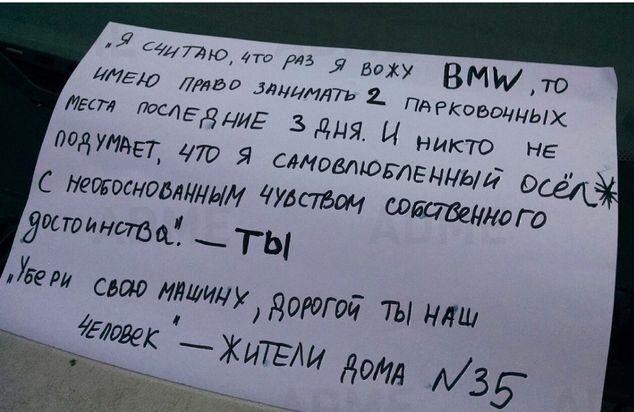 „Я СЧИТАЮ, ЧТО РАЗ Я ВОЖУ BMW, ТО
ИМЕЮ ПРАВО ЗАНИМАТЬ 2 ПАРКОВОЧНЫХ
МЕСТА ПОСЛЕДНИЕ 3 ДНЯ. И НИКТО НЕ
ПОДУМАЕТ, ЧТО Я САМОВЛЮБЛЕННЫЙ ОСЁЛ*
С НЕОБОСНОВАННЫМ ЧУВСТВОМ СОБСТВЕННОГО
ДОСТОИНСТВА". – ТЫ
„УБЕРИ СВОЮ МАШИНУ, ДОРОГОЙ ТЫ НАШ
ЧЕЛОВЕК" – ЖИТЕЛИ ДОМА N35
ADME
ADME